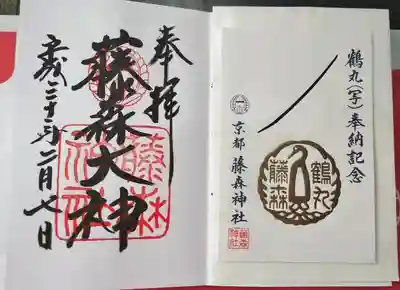 鶴丸(写)奉納記念
京都 藤森神社
鶴丸
藤森
奉拝
藤森大神
藤森神社
平成三十一年二月七日